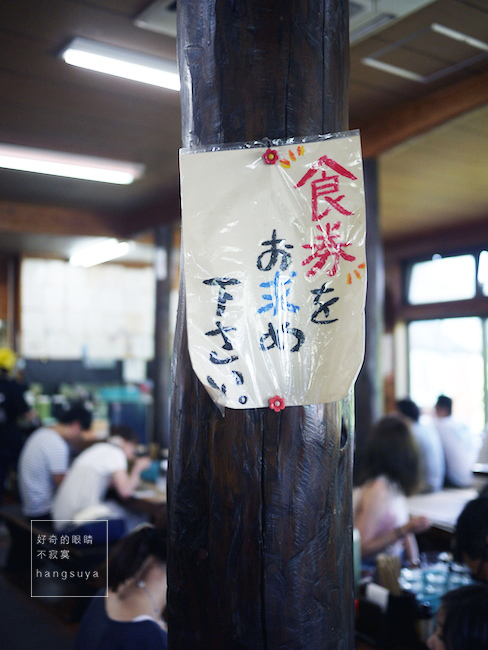 食券を
お求め
下さい。
好奇的眼睛
不寂寞
hangsuya